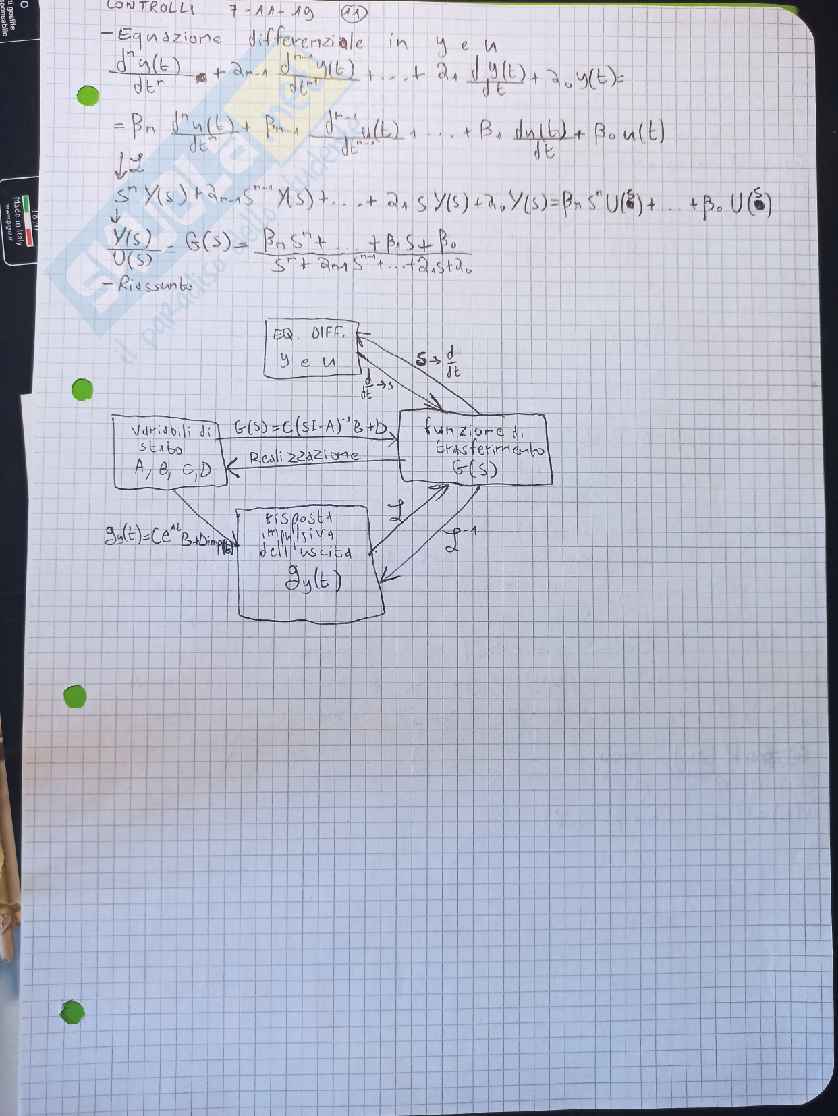 CONTROLLI 7-11-19 (11)
- Equazione differenziale in y e u
dⁿy(t)/dtⁿ + a_{n-1} d^{n-1}y(t)/dt^{n-1} + ... + a₁ dy(t)/dt + a₀ y(t) =
= βn dⁿu(t)/dtⁿ + β_{n-1} d^{n-1}u(t)/dt^{n-1} + ... + β₁ du(t)/dt + β₀ u(t)
↓ ℒ
sⁿ Y(s) + a_{n-1} s^{n-1} Y(s) + ... + a₁ s Y(s) + a₀ Y(s) = βn sⁿ U(s) + ... + β₀ U(s)
↓
Y(s)/U(s) = G(s) = (βn sⁿ + ... + β₁ s + β₀)/(sⁿ + a_{n-1} s^{n-1} + ... + a₁ s + a₀)
- Riassunto
EQ. DIFF.
y e u
s → d/dt
d/dt → s
variabili di
stato
A, B, C, D
G(s) = C(sI-A)⁻¹B+D
Realizzazione
funzione di
trasferimento
G(s)
gy(t) = Ce^{At}B + D imp(t)
risposta
impulsiva
dell'uscita
gy(t)
ℒ
ℒ⁻¹
SKUOLA.net
il paradiso dello studente
Made in Italy